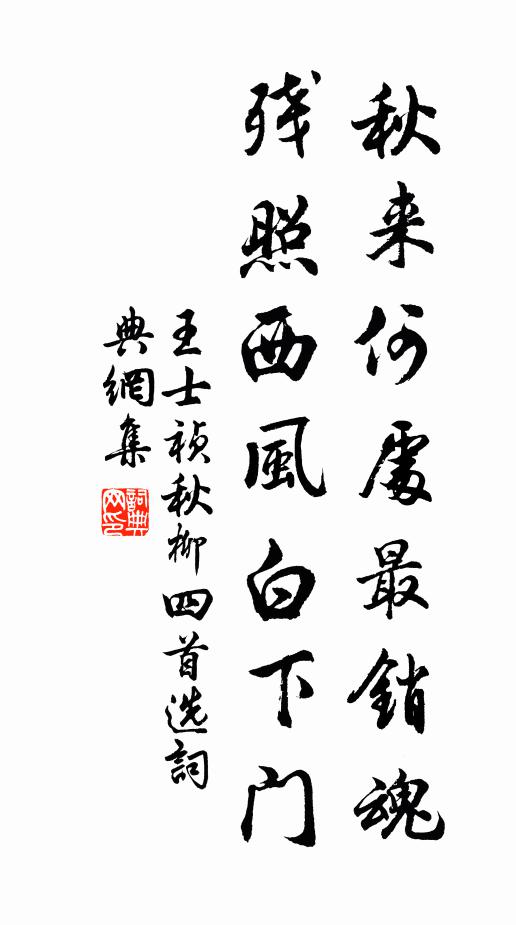 秋来何處最銷魂
残照西風白下门
王士祯秋柳四首选詞
典網集
詞典网印